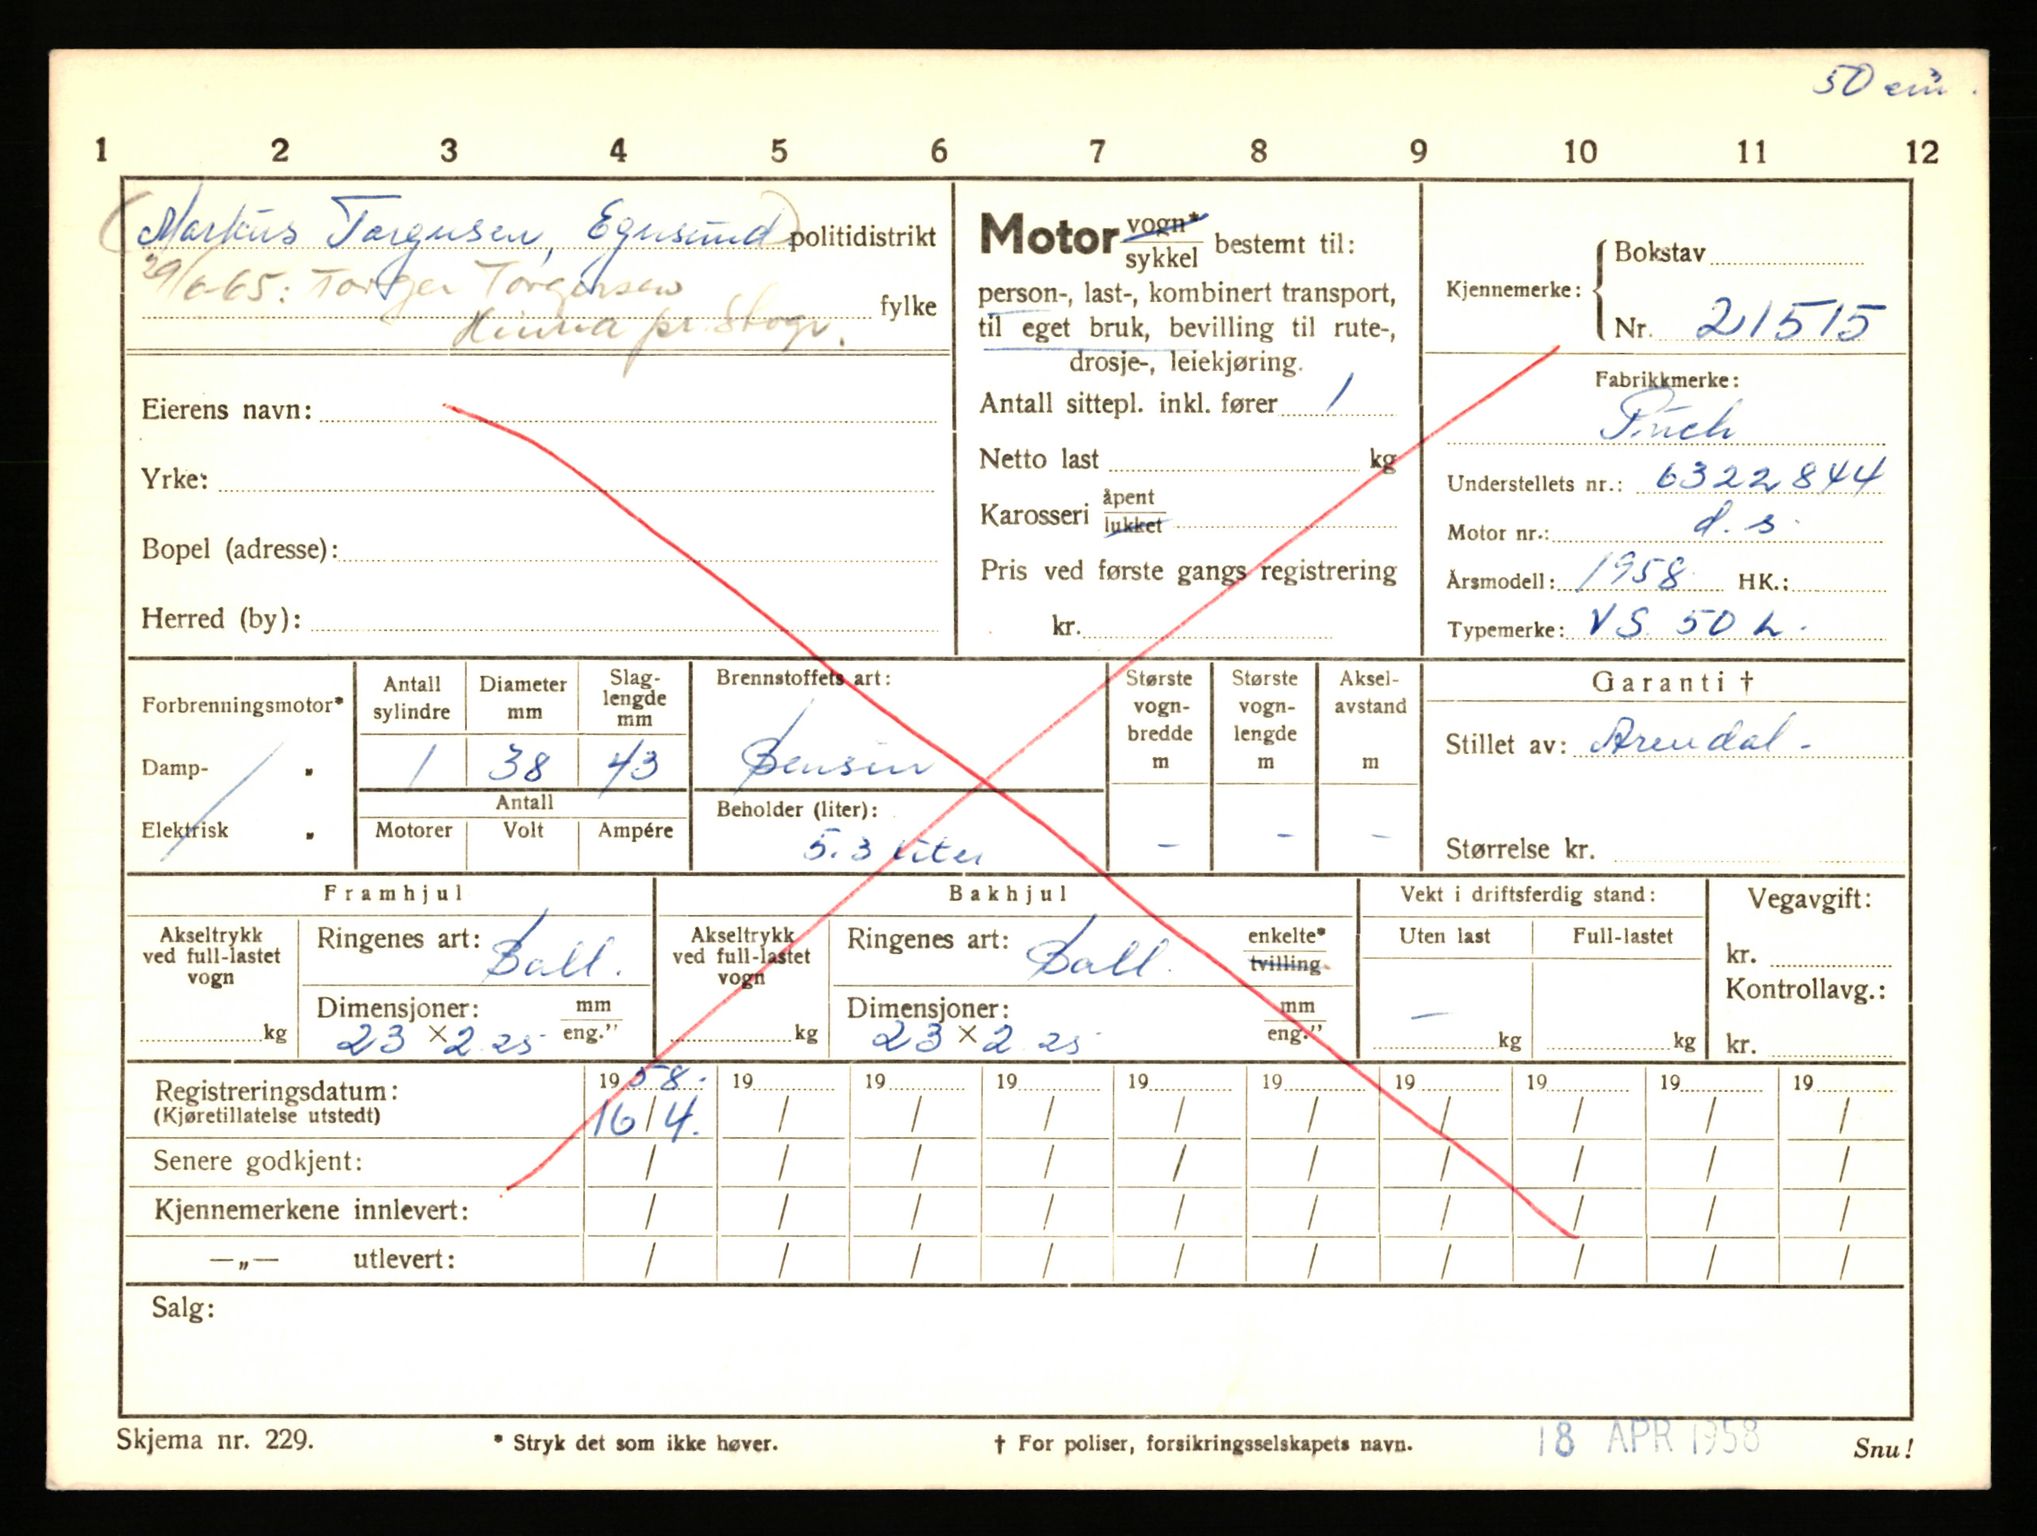 50 cm³.
1 2 3 4 5 6 7 8 9 10 11 12
(Markus Torgersen, Egersund) politidistrikt
29/6-65: Torger Torgersen
Hinna pr. Stvgr. fylke
Eierens navn:
Yrke:
Bopel (adresse):
Herred (by):
Motor vogn* sykkel bestemt til:
person-, last-, kombinert transport,
til eget bruk, bevilling til rute-,
drosje-, leiekjøring.
Antall sittepl. inkl. fører 1
Netto last kg
Karosseri åpent lukket
Pris ved første gangs registrering
kr.
Kjennemerke: Bokstav
Nr. 21515
Fabrikkmerke:
Puch
Understellets nr.: 6322844
Motor nr.: d. s.
Årsmodell: 1958 HK.:
Typemerke: VS. 50 L.
Forbrenningsmotor*
Damp- „
Elektrisk „
Antall sylindre Diameter mm Slag-lengde mm
1 38 43
Antall
Motorer Volt Ampére
Brennstoffets art:
Bensin
Beholder (liter):
5.3 liter
Største vogn-bredde m
–
Største vogn-lengde m
–
Aksel-avstand m
–
Garanti †
Stillet av: Arendal –
Størrelse kr.
Framhjul
Akseltrykk ved full-lastet vogn
kg
Ringenes art: Ball.
Dimensjoner: mm eng."
23 × 2.25
Bakhjul
Akseltrykk ved full-lastet vogn
kg
Ringenes art: Ball. enkelte* tvilling
Dimensjoner: mm eng."
23 × 2.25
Vekt i driftsferdig stand:
Uten last Full-lastet
– kg kg
Vegavgift:
kr.
Kontrollavg.:
kr.
Registreringsdatum: 1958. 19 19 19 19 19 19 19 19 19
(Kjøretillatelse utstedt) 16/4. / / / / / / / / /
Senere godkjent: / / / / / / / / / /
Kjennemerkene innlevert: / / / / / / / / / /
—„— utlevert: / / / / / / / / / /
Salg:
Skjema nr. 229. * Stryk det som ikke høver. † For poliser, forsikringsselskapets navn. 18 APR 1958 Snu!